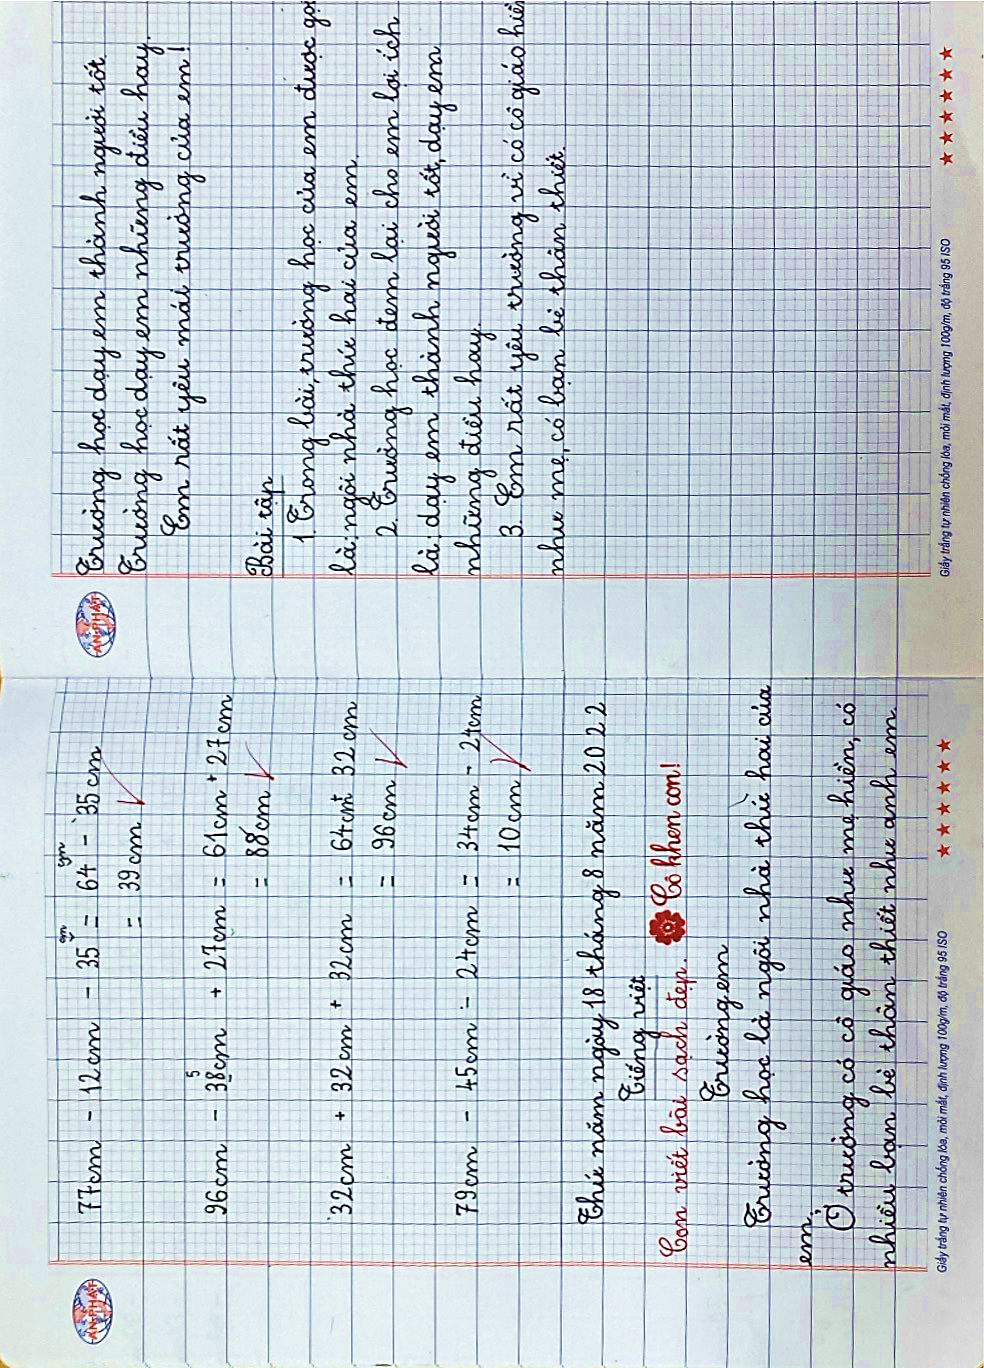 AN PHÁT
77cm - 12cm - 35cm = 64cm - 35cm
= 39cm
96cm - 38cm + 27cm = 61cm + 27cm
5
= 88cm
32cm + 32cm + 32cm = 64cm + 32cm
= 96cm
79cm - 45cm - 24cm = 34cm - 24cm
= 10cm
Thứ năm ngày 18 tháng 8 năm 2022
Tiếng việt
Con viết bài sạch đẹp. Cô khen con!
Trường em
Trường học là ngôi nhà thứ hai của
em.
Ở trường có cô giáo như mẹ hiền, có
nhiều bạn bè thân thiết như anh em.
Giấy trắng tự nhiên chống lóa, mỏi mắt, định lượng 100g/m, độ trắng 95 ISO
AN PHÁT
Trường học dạy em thành người tốt.
Trường học dạy em những điều hay.
Em rất yêu mái trường của em!
Bài tập
1. Trong bài, trường học của em được gọi
là: ngôi nhà thứ hai của em.
2. Trường học đem lại cho em lợi ích
là: dạy em thành người tốt, dạy em
những điều hay.
3. Em rất yêu trường vì có cô giáo hiền
như mẹ, có bạn bè thân thiết.
Giấy trắng tự nhiên chống lóa, mỏi mắt, định lượng 100g/m, độ trắng 95 ISO